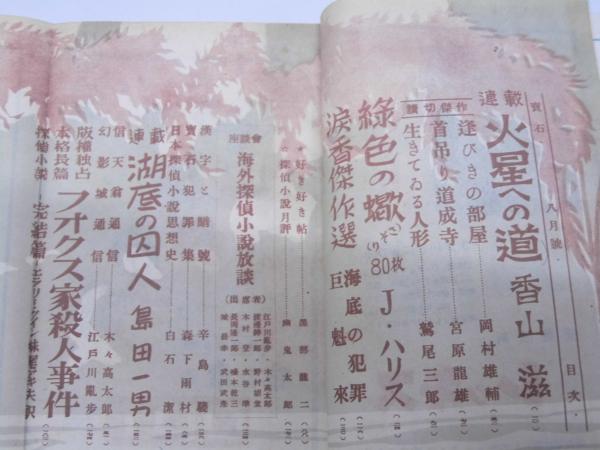 寶石 八月號 目次
連載 火星への道 香山滋
逢びきの部屋 岡村雄輔
讀切傑作
首吊り道成寺 宮原龍雄
生きてゐる人形 鷲尾三郎
綠色の蠍 さそり 80枚 J・ハリス
淚香傑作選 海底の犯罪
巨魁來
好き好き帖 黒部龍二
探偵小說月評 幽鬼太郎
座談會 海外探偵小說放談
(出席者)
江戸川亂步・木々高太郎
渡邊紳一郎・野村胡堂
木村登・水谷準
長沼弘毅
城昌幸・武田武彦
漢字と暗號 辛島驍
寶石犯罪集 森下雨村
日本探偵小說思想史 白石潔
連載 湖底の囚人 島田一男
信天翁通信 木々高太郎
幻影城通信 江戸川亂步
版權独占
本格長篇 フオクス家殺人事件
探偵小說 完結篇 エラリイ・クイン 妹尾アキ夫訳